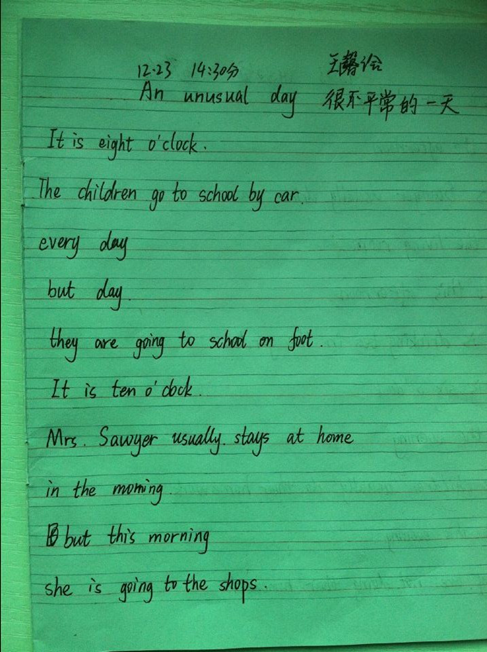 12.23 14:30分 王馨谂
An unusual day 很不平常的一天
It is eight o'clock.
The children go to school by car.
every day
but day.
they are going to school on foot.
It is ten o'clock.
Mrs. Sawyer usually. stays at home
in the morning.
but this morning
she is going to the shops.